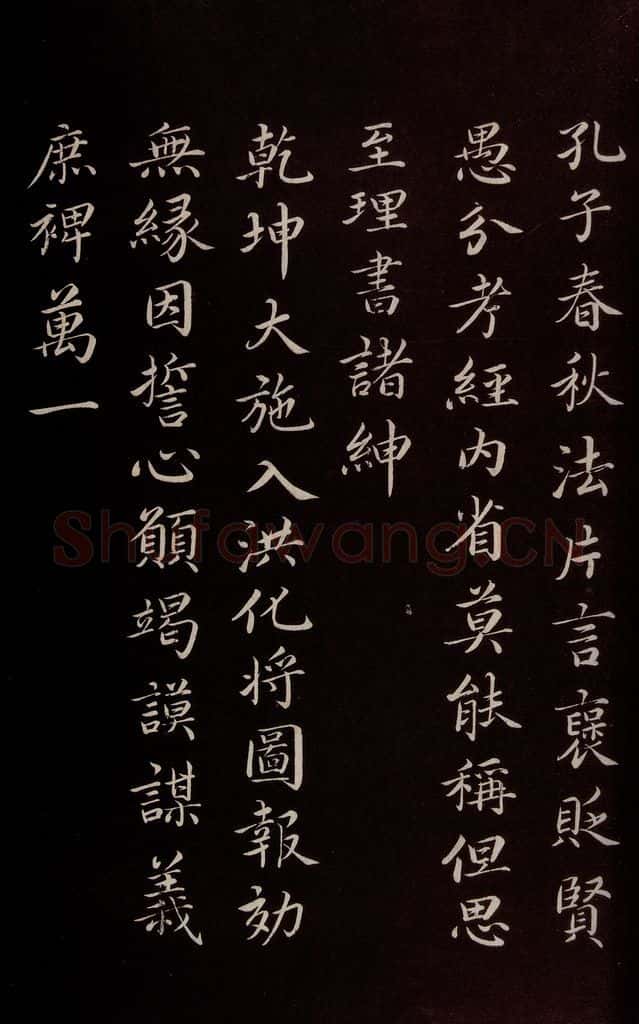 孔子春秋法片言襃貶賢
愚分考經內省莫能稱但思
至理書諸紳
乾坤大施入洪化將圖報効
無緣因誓心願竭謨謀義
庶裨萬一
Shufawang.CN